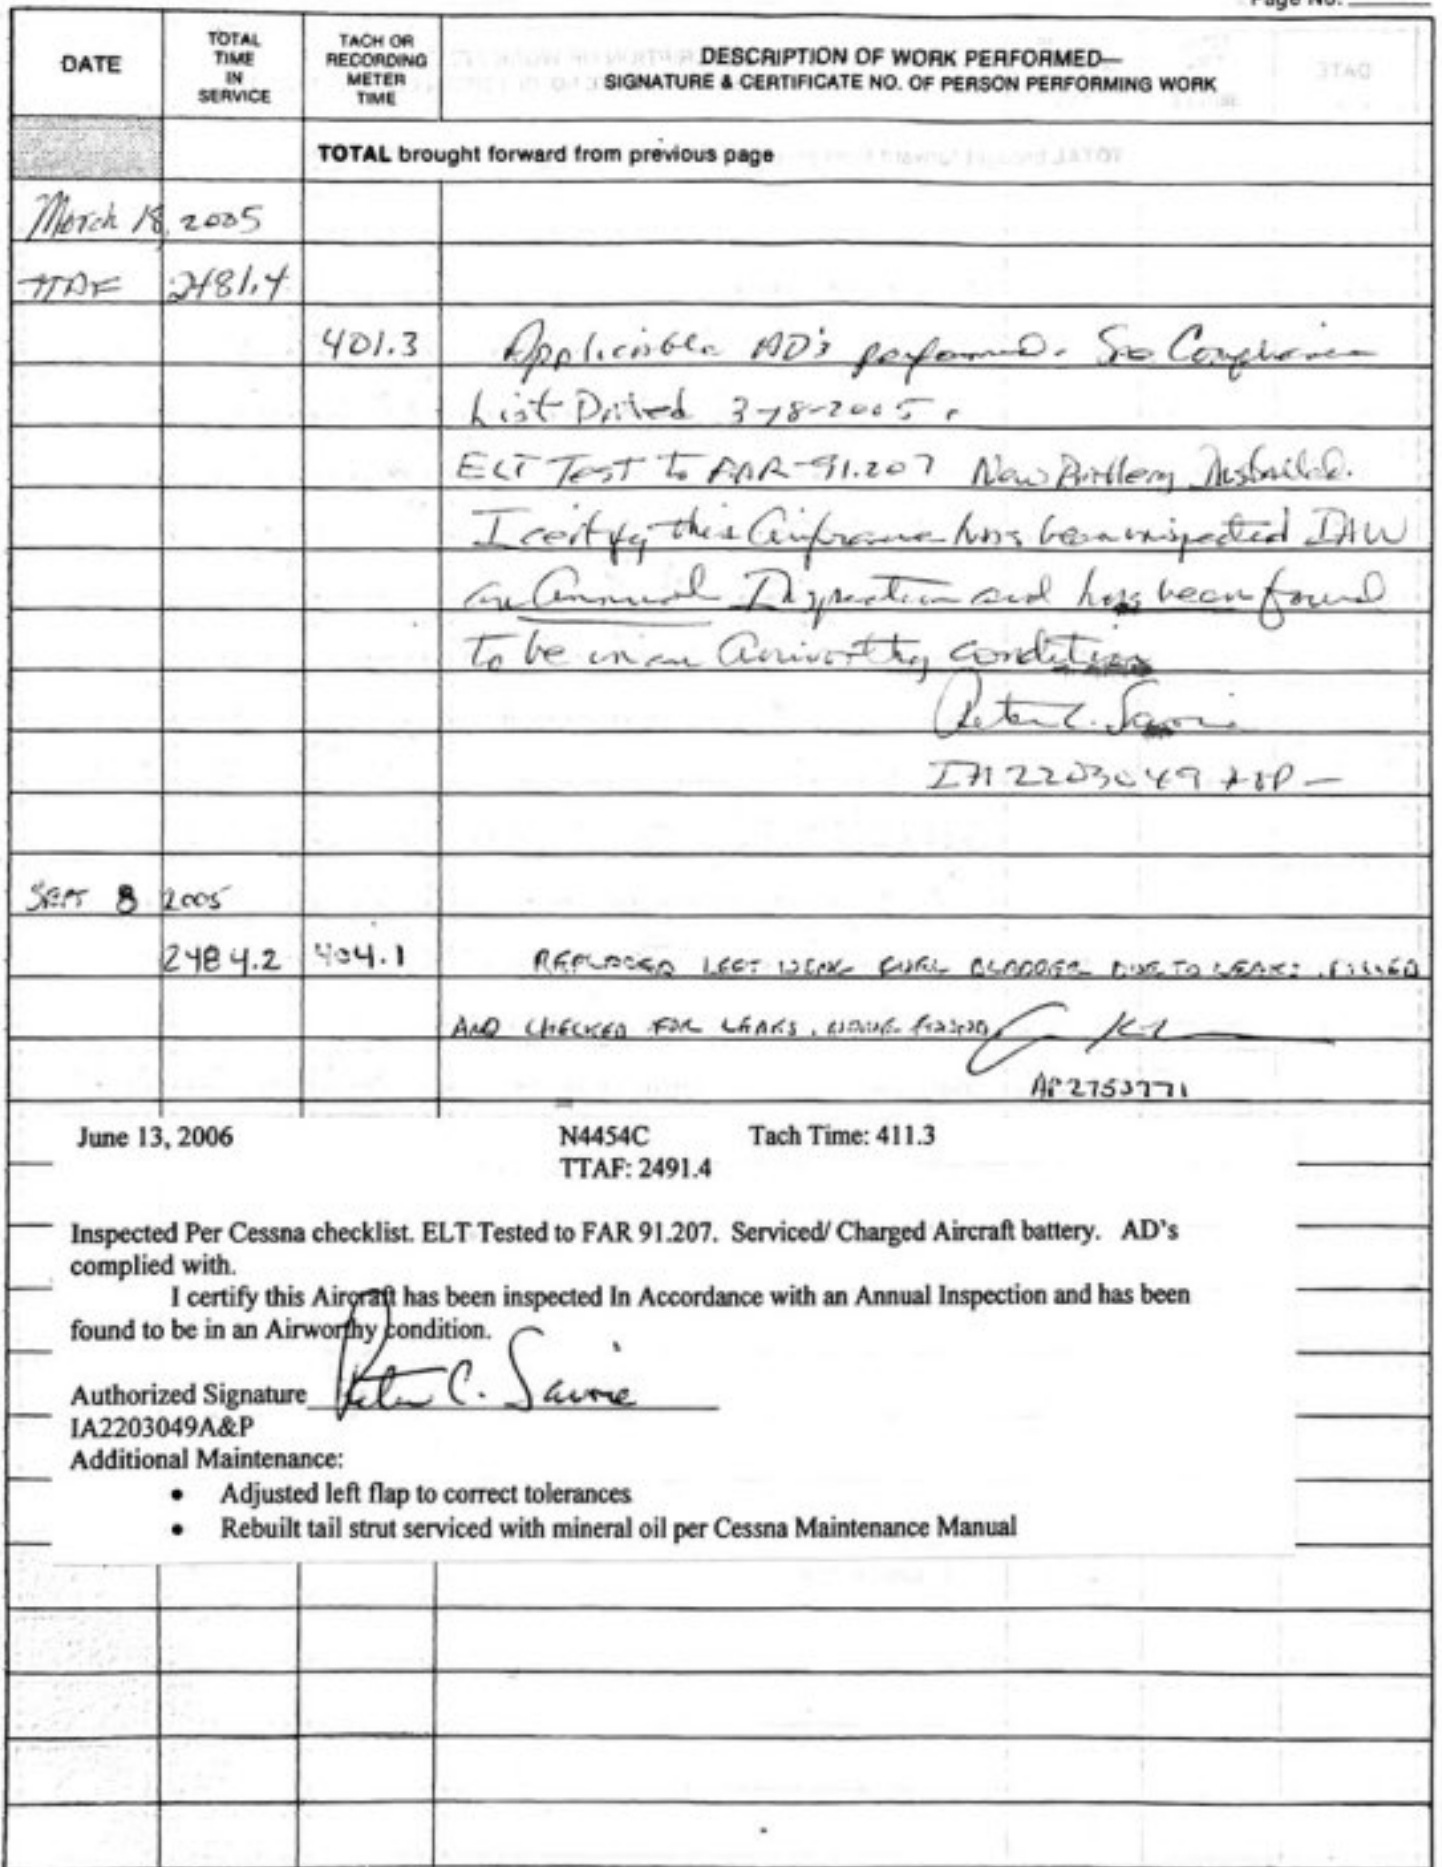 Page No.
DATE
TOTAL TIME IN SERVICE
TACH OR RECORDING METER TIME
DESCRIPTION OF WORK PERFORMED—
SIGNATURE & CERTIFICATE NO. OF PERSON PERFORMING WORK
TOTAL brought forward from previous page
March 18, 2005
TTAF 2481.4
401.3 Applicable AD's performed. See Compliance
List Dated 3-18-2005.
ELT Test to FAR-91.207 New Battery Installed.
I certify this Airframe has been inspected IAW
an Annual Inspection and has been found
To be in an Airworthy condition
Peter C. Savoie
IA2203049 A&P
SEPT 8 2005
2484.2 404.1 REPLACED LEFT WING FUEL BLADDER DUE TO LEAKS. FILLED
AND CHECKED FOR LEAKS. NONE FOUND
June 13, 2006 N4454C Tach Time: 411.3
TTAF: 2491.4
Inspected Per Cessna checklist. ELT Tested to FAR 91.207. Serviced/ Charged Aircraft battery. AD's
complied with.
I certify this Aircraft has been inspected In Accordance with an Annual Inspection and has been
found to be in an Airworthy condition.
Authorized Signature Peter C. Savoie
IA2203049A&P
Additional Maintenance:
• Adjusted left flap to correct tolerances
• Rebuilt tail strut serviced with mineral oil per Cessna Maintenance Manual